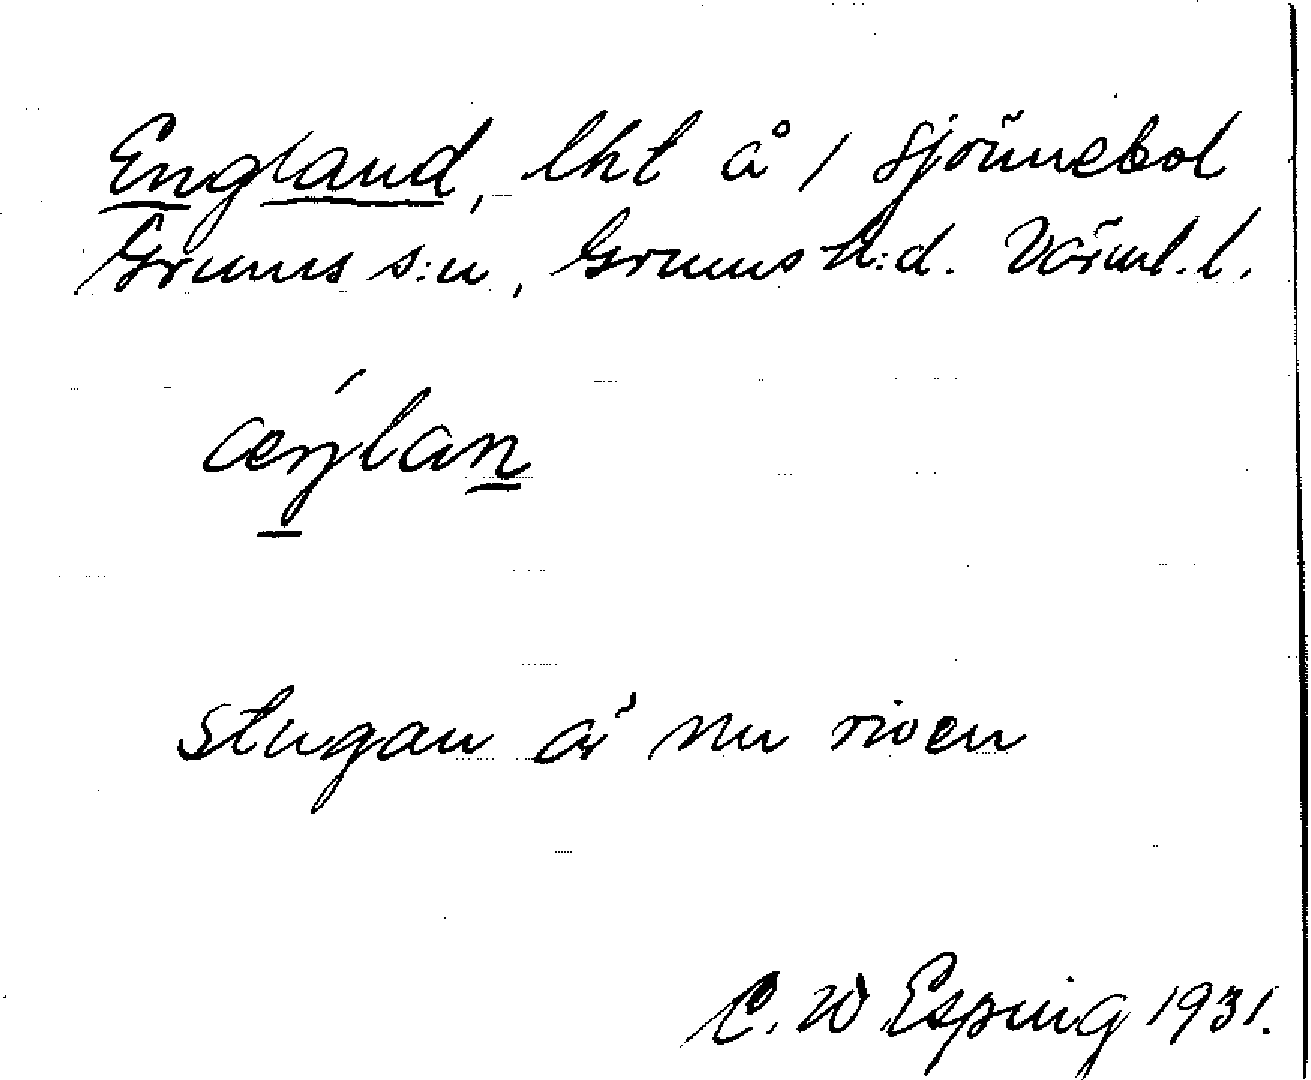 England, lht å 1 Sjönnebol
Grums s:n, Grums h:d. Värml. l.
æŋ́lan
stugan är nu riven
C. W Esping 1931.